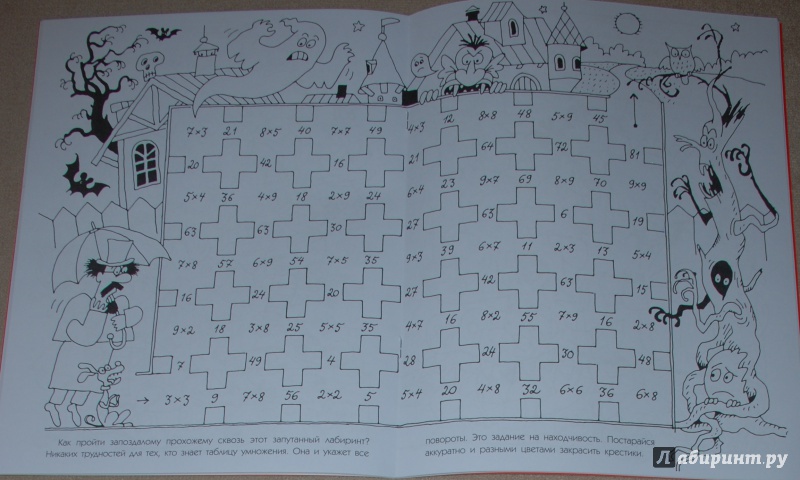 7×3 21 8×5 40 7×7 49 4×3 12 8×8 48 5×9 45
20 42 16 21 64 72 81
5×4 36 4×9 18 2×9 24 6×4 23 9×7 69 8×9 70 9×9
63 63 30 27 63 6 19
7×8 57 6×9 54 7×5 35 9×3 39 6×7 11 2×3 13 5×4
16 24 20 27 42 63 15
9×2 18 3×8 25 5×5 35 4×7 16 8×2 55 7×9 16 2×8
7 49 4 28 24 30 48
→ 3×3 9 7×8 56 2×2 5 5×4 20 4×8 32 6×6 36 6×8
Как пройти запоздалому прохожему сквозь этот запутанный лабиринт?
Никаких трудностей для тех, кто знает таблицу умножения. Она и укажет все
повороты. Это задание на находчивость. Постарайся
аккуратно и разными цветами закрасить крестики.
Лабиринт.ру